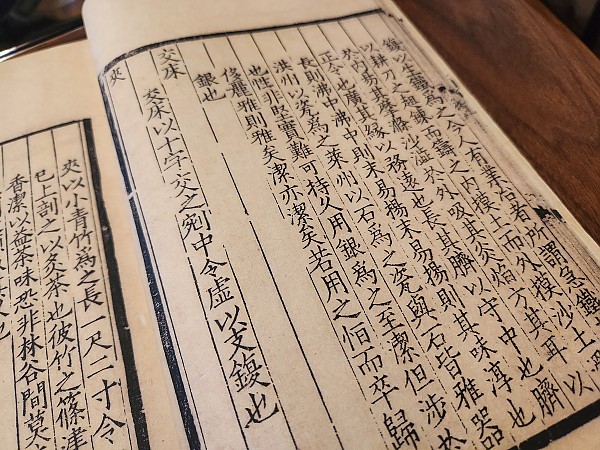 鍑以生鐵爲之今人有業冶者所謂急鐵
以耕刀之趄鍊而鑄之内摸土而外摸沙土
於内易其摩滌沙澁於外吸其炎焰方其耳以
正令也廣其緣以務遠也長其臍以守中也臍
長則沸中沸中則末易揚末易揚則其味淳也
洪州以瓷爲之萊州以石爲之瓷與石皆雅器
也性非堅實難可持久用銀爲之至潔但涉於
侈麗雅則雅矣潔亦潔矣若用之恒而卒歸
銀也
交床
交床以十字交之剜中令虛以支鍑也
夾
夾以小青竹爲之長一尺二寸令
已上剖之以炙茶也彼竹之篠津
香潔以益茶味恐非林谷間莫